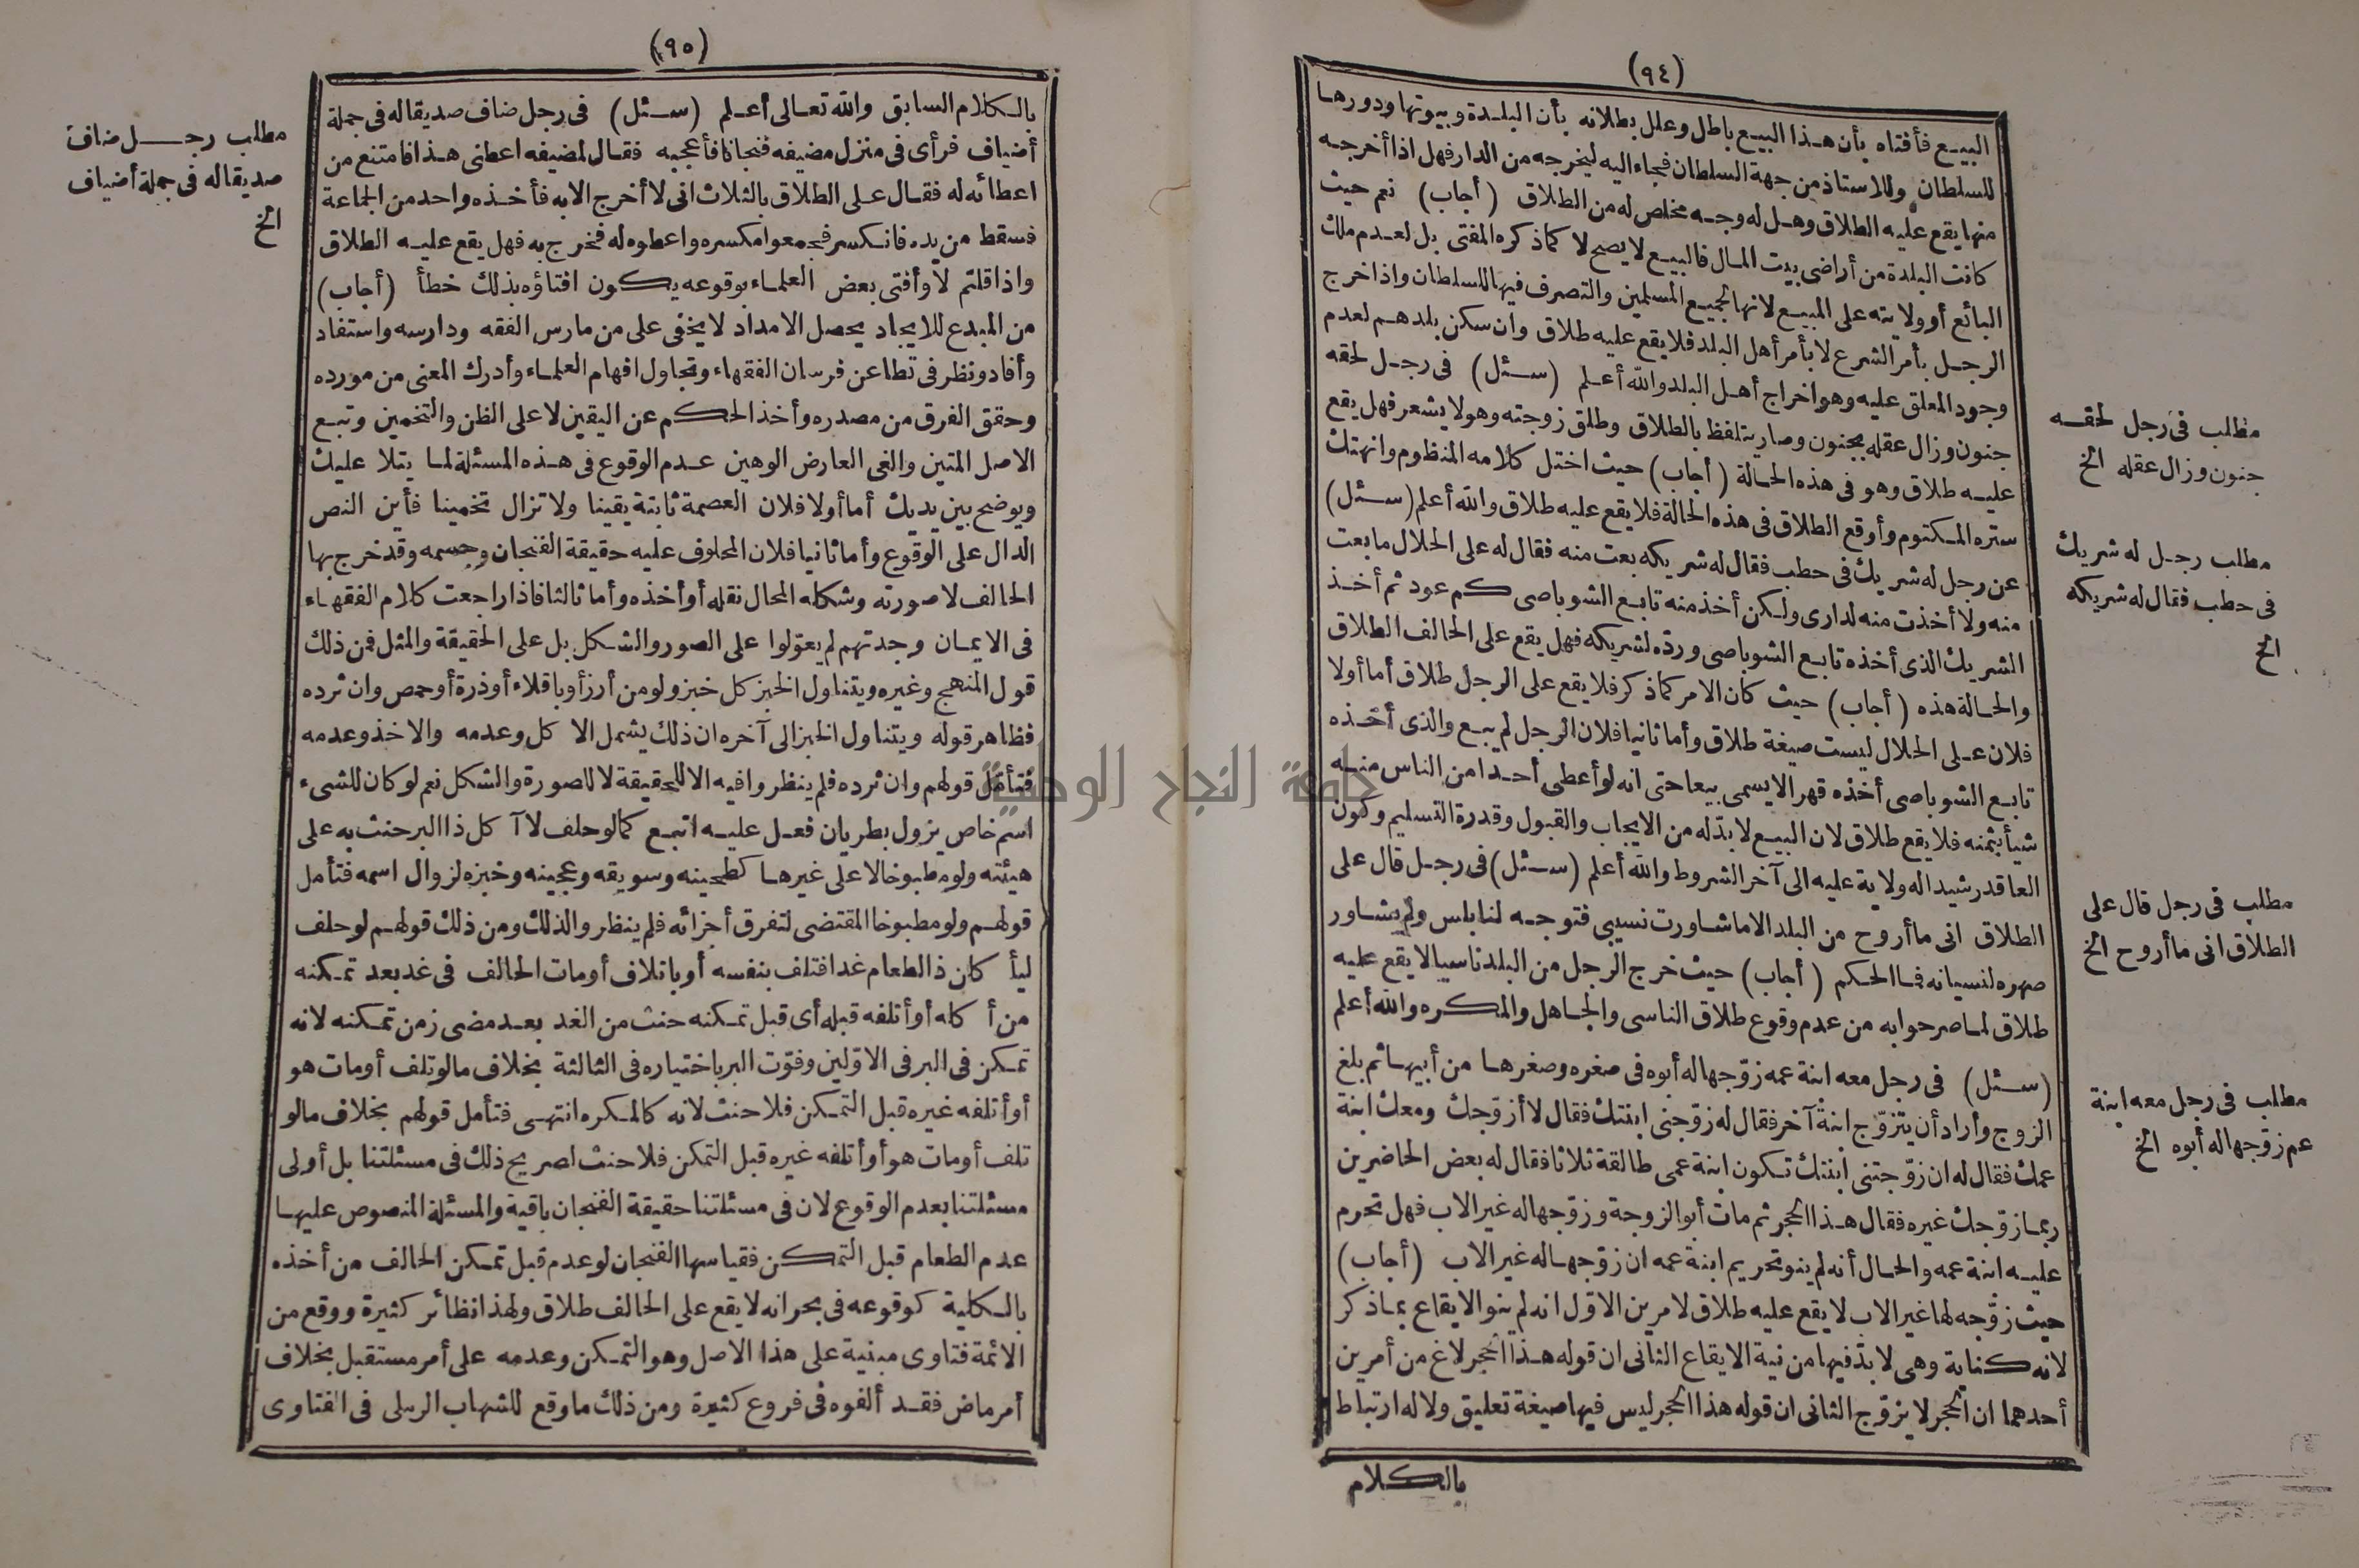 (٩٤)
البيع فأفتاه بأن هذا البيع باطل وعلل بطلانه بأن البلدة وبيوتها ودورها
للسلطان وللاستاذ من جهة السلطان فجاء اليه ليخرجه من الدار فهل اذا أخرجه
منها يقع عليه الطلاق وهل له وجه مخلص له من الطلاق (أجاب) نعم حيث
كانت البلدة من أراضى بيت المال فالبيع لا يصح لا كما ذكره المفتى بل لعدم ملك
البائع أو ولايته على المبيع لانها لجميع المسلمين والتصرف فيها للسلطان واذا خرج
الرجل بأمر الشرع لا بأمر أهل البلد فلا يقع عليه طلاق وان سكن بلدهم لعدم
وجود المعلق عليه وهو اخراج أهل البلد والله أعلم (سئل) فى رجل لحقه
جنون وزال عقله بجنون وصار يتلفظ بالطلاق وطلق زوجته وهو لا يشعر فهل يقع
عليه طلاق وهو فى هذه الحالة (أجاب) حيث اختل كلامه المنظوم وانهتك
ستره المكتوم وأوقع الطلاق فى هذه الحالة فلا يقع عليه طلاق والله أعلم (سئل)
عن رجل له شريك فى حطب فقال له شريكه بعت منه فقال له على الحلال ما بعت
منه ولا أخذت منه لدارى ولكن أخذ منه تابع الشوباصى كم عود ثم أخذ
الشريك الذى أخذه تابع الشوباصى ورده لشريكه فهل يقع على الحالف الطلاق
والحالة هذه (أجاب) حيث كان الامر كما ذكر فلا يقع على الرجل طلاق أما أولا
فلان على الحلال ليست صيغة طلاق وأما ثانيا فلان الرجل لم يبع والذى أخذه
تابع الشوباصى أخذه قهرا لا يسمى بيعا حتى انه لو أعطى أحدا من الناس منه
شيأ بثمنه فلا يقع طلاق لان البيع لا بدّ له من الايجاب والقبول وقدرة التسليم وكون
العاقد رشيدا له ولاية عليه الى آخر الشروط والله أعلم (سئل) فى رجل قال على
الطلاق انى ما أروح من البلد الا ما شاورت نسيبى فتوجه لنابلس ولم يشاور
صهره لنسيانه فما الحكم (أجاب) حيث خرج الرجل من البلد ناسيا لا يقع عليه
طلاق لما صرحوا به من عدم وقوع طلاق الناسى والجاهل والمكره والله أعلم
(سئل) فى رجل معه ابنة عمه زوّجها له أبوه فى صغره وصغرها من أبيها ثم بلغ
الزوج وأراد أن يتزوّج ابنة آخر فقال له زوّجنى ابنتك فقال لا أزوّجك ومعك ابنة
عمك فقال له ان زوّجتنى ابنتك تكون ابنة عمى طالقة ثلاثا فقال له بعض الحاضرين
ربما زوّجك غيره فقال هذا الحجر ثم مات أبو الزوجة وزوّجها له غير الاب فهل تحرم
عليه ابنة عمه والحال أنه لم ينو تحريم ابنة عمه ان زوّجها له غير الاب (أجاب)
حيث زوّجه لها غير الاب لا يقع عليه طلاق لامرين الاوّل انه لم ينو الايقاع بما ذكر
لانه كناية وهى لا بدّ فيها من نية الايقاع الثانى ان قوله هذا الحجر لاغ من أمرين
أحدهما ان الحجر لا يزوّج الثانى ان قوله هذا الحجر ليس فيها صيغة تعليق ولا له ارتباط
بالكلام
مطلب فى رجل لحقه
جنون وزال عقله الخ
مطلب رجل له شريك
فى حطب فقال له شريكه
الخ
مطلب فى رجل قال على
الطلاق انى ما أروح الخ
مطلب فى رجل معه ابنة
عم زوّجها له أبوه الخ
(٩٥)
بالكلام السابق والله تعالى أعلم (سئل) فى رجل ضاف صديقا له فى جملة
أضياف فرأى فى منزل مضيفه فنجانا فأعجبه فقال لمضيفه اعطنى هذا فامتنع من
اعطائه له فقال على الطلاق بالثلاث انى لا أخرج الا به فأخذه واحد من الجماعة
فسقط من يده فانكسر فجمعوا مكسره واعطوه له فخرج به فهل يقع عليه الطلاق
واذا قلتم لا وأفتى بعض العلماء بوقوعه يكون افتاؤه بذلك خطأ (أجاب)
من المبدع للايجاد يحصل الامداد لا يخفى على من مارس الفقه ودارسه واستفاد
وأفاد ونظر فى تطاعن فرسان الفقهاء وتجاول افهام العلماء وأدرك المعنى من مورده
وحقق الفرق من مصدره وأخذ الحكم عن اليقين لا على الظن والتخمين وتبع
الاصل المتين والغى العارض الوهين عدم الوقوع فى هذه المسئلة لما يتلا عليك
ويوضح بين يديك أما أولا فلان العصمة ثابتة يقينا ولا تزال تخمينا فأين النص
الدال على الوقوع وأما ثانيا فلان المحلوف عليه حقيقة الفنجان وجسمه وقد خرج بها
الحالف لا صورته وشكله المحال نقله أو أخذه وأما ثالثا فاذا راجعت كلام الفقهاء
فى الايمان وجدتهم لم يعوّلوا على الصور والشكل بل على الحقيقة والمثل فمن ذلك
قول المنهج وغيره ويتناول الخبز كل خبز ولو من أرز أو باقلاء أو ذرة أو حمص وان ثرده
فظاهر قوله ويتناول الخبز الى آخره ان ذلك يشمل الا كل وعدمه والاخذ وعدمه
فتأمّل قولهم وان ثرده فلم ينظروا فيه الا للحقيقة لا للصورة والشكل نعم لو كان للشىء
اسم خاص يزول بطريان فعل عليه اتبع كما لو حلف لا آ كل ذا البر حنث به على
هيئته ولو مطبوخا لا على غيرها كطحينه وسويقه وعجينه وخبزه لزوال اسمه فتأمل
قولهم ولو مطبوخا المقتضى لتفرق أجزائه فلم ينظروا لذلك ومن ذلك قولهم لو حلف
ليأ كلن ذا الطعام غدا فتلف بنفسه أو باتلاف أو مات الحالف فى غد بعد تمكنه
من أ كله أو أتلفه قبله أى قبل تمكنه حنث من الغد بعد مضى زمن تمكنه لانه
تمكن فى البر فى الاوّلين وفوّت البر باختياره فى الثالثة بخلاف ما لو تلف أو مات هو
أو أتلفه غيره قبل التمكن فلا حنث لانه كالمكره انتهى فتأمل قولهم بخلاف ما لو
تلف أو مات هو أو أتلفه غيره قبل التمكن فلا حنث اصريح ذلك فى مسئلتنا بل أولى
مسئلتنا بعدم الوقوع لان فى مسئلتنا حقيقة الفنجان باقية والمسئلة المنصوص عليها
عدم الطعام قبل التمكن فقياسها الفنجان لو عدم قبل تمكن الحالف من أخذه
بالكلية كوقوعه فى بحر انه لا يقع على الحالف طلاق ولهذا نظائر كثيرة ووقع من
الائمة فتاوى مبنية على هذا الاصل وهو التمكن وعدمه على أمر مستقبل بخلاف
أمر ماض فقد ألفوه فى فروع كثيرة ومن ذلك ما وقع للشهاب الرملى فى الفتاوى
مطلب رجل ضاف
صديقا له فى جملة أضياف
الخ
جامعة النجاح الوطنية